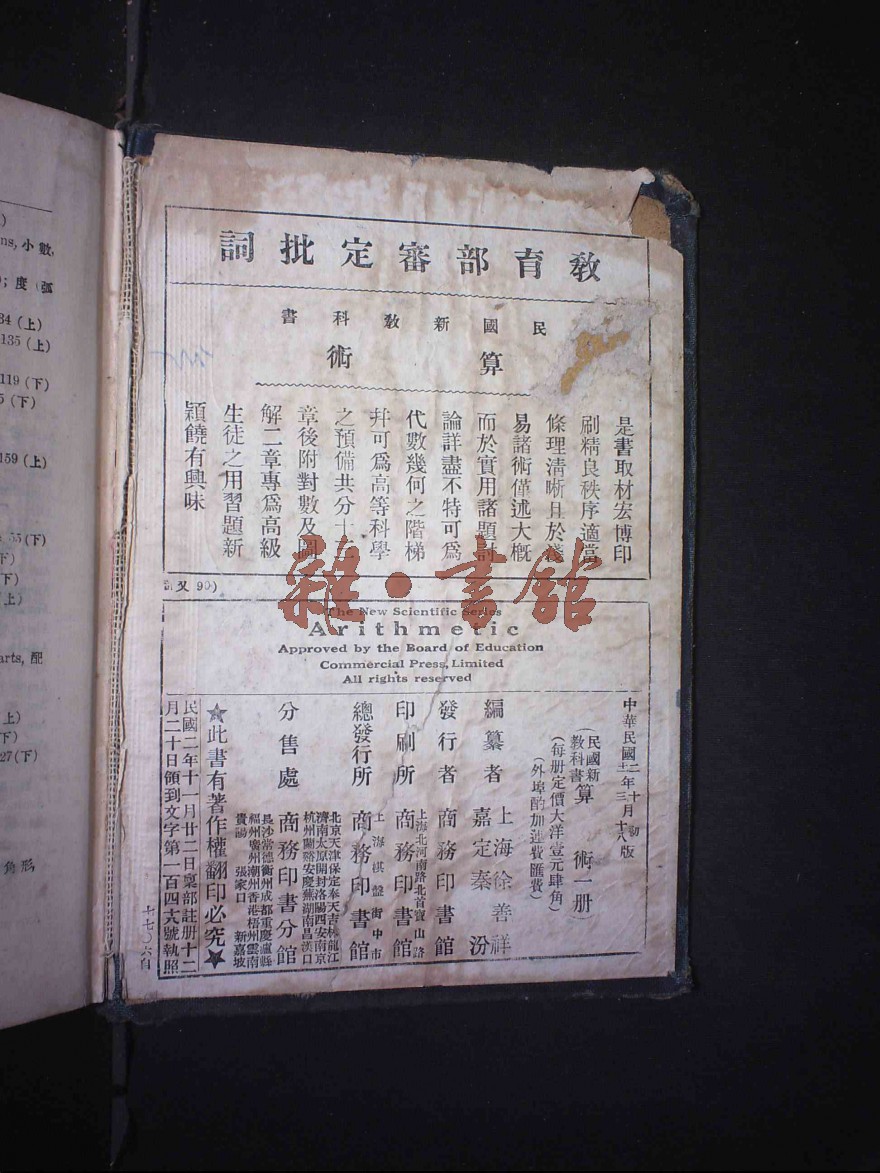 ns, 小數,
; 度 (弧
34 (上)
135 (上)
119 (下)
5 (下)
159 (上)
55 (下)
下)
下)
上)
arts, 配
上)
下)
27 (下)
角形,
教育部審定批詞
民國新教科書
算術
是書取材宏博印
刷精良秩序適當
條理清晰且於淺
易諸術僅述大概
而於實用諸題討
論詳盡不特可爲
代數幾何之階梯
幷可爲高等科學
之預備共分十二
章後附對數及圖
解二章專爲高級
生徒之用習題新
穎饒有興味
又 90)
雜·書館
The New Scientific Series
Arithmetic
Approved by the Board of Education
Commercial Press, Limited
All rights reserved
中華民國
(民國新教科書 算術一册)
(每册定價大洋壹元肆角)
(外埠酌加運費匯費)
編纂者 上海徐善祥
嘉定秦汾
發行者 商務印書館
上海北河南路北首寶山路
印刷所 商務印書館
上海棋盤街中市
總發行所 商務印書館
北京天津保定奉天吉林龍江
濟南太原開封洛陽西安南京
杭州蘭谿安慶蕪湖南昌漢口
分售處 商務印書分館
長沙常德衡州成都重慶瀘縣
福州廣州潮州香港梧州雲南
貴陽 張家口 新嘉坡
★此書有著作權翻印必究★
民國二年十一月廿二日稟部註册十二
月二十日領到文字第一百四六號執照
七七〇六自